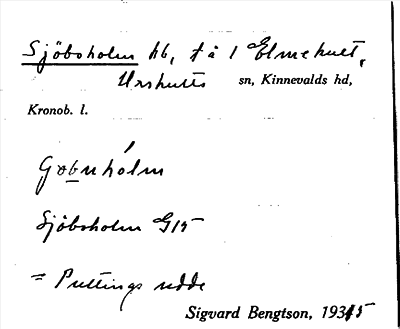 Sjöboholm hb, t å 1 Elmehult,
Urshults sn, Kinnevalds hd,
Kronob. l.
Gobnhólm
Sjöboholm G15
= Puttings udde
Sigvard Bengtson, 1935